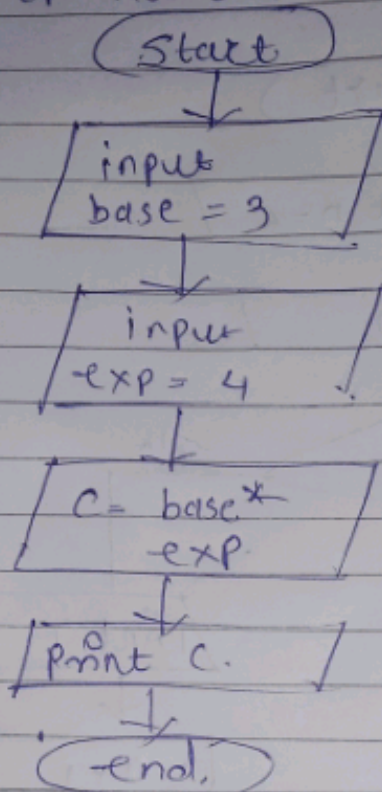 Start
input
base = 3
input
exp = 4
C = base*
exp.
Print C.
end.